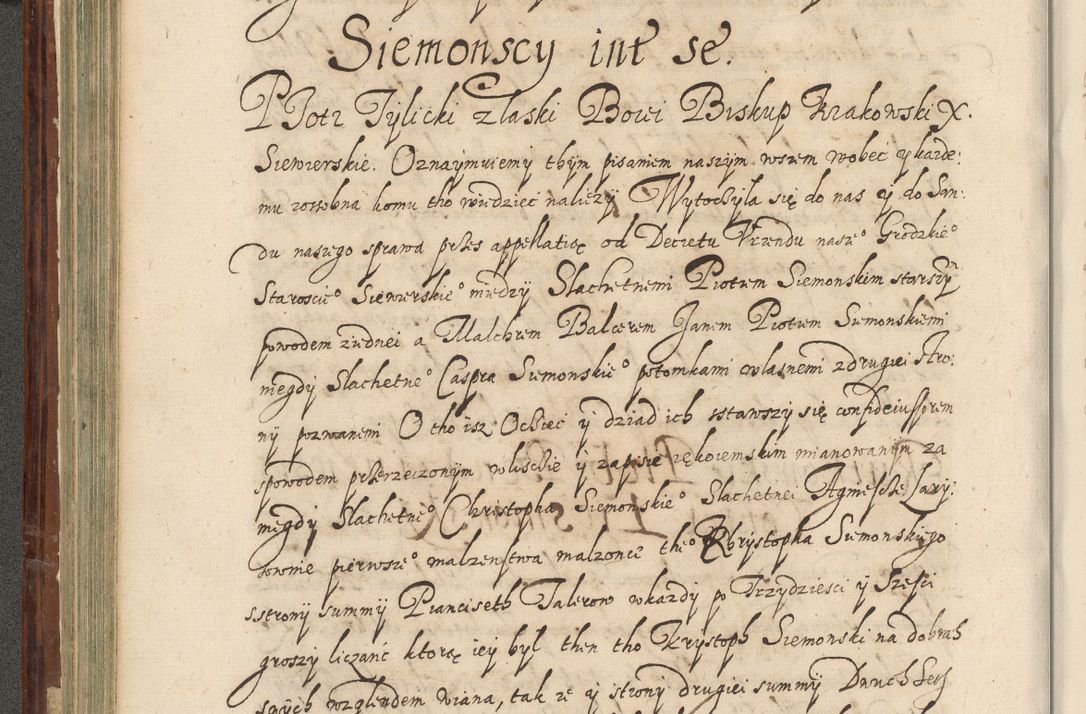 Siemonscy int se.
PIotr Tylicki zlaski Bozei Biskup Krakowski X.
Siewierskie. Oznaymuiemy thym pisaniem naszym wszem wobec y kazde:
mu zossobna komu tho wiedziec naliezy Wytoczyla się do nas y do Sąn:
du naszego sprawa przes appellatią od Decretu Vrzendu nasze° Grodzkie°
Staroscie° Siewierskie° miedzy Slachetnemi Piotrem Siemonskim starszym
powodem ziednei a Malchrem Balcerem Janem Piotrem Siemonskiemi
niegdy Slachetne° Caspra Siemonskie° potomkami wlasnemi zdrugiei stro:
ny pozwanemi O tho isz Ociec y dziad ich stawszy się confideiussorem
spowodem przerzeczonym wliscie y zapisie rękoiemskim mianowanym za
niegdy Slachetne° Christopha Siemonskie° Slachetnei Agniesce
pierwsze° malzenstwa malzonce the° Khrystopha Siemonskiego
sstrony summy Pianciseth Talerow wkazdy po Trzydziesci y Szesci
groszy liczanc ktorą iey byl then tho Krystoph Siemonski na dobrach
swych wzglendem wiana, tak ze y strony drugiei summy Dwuch